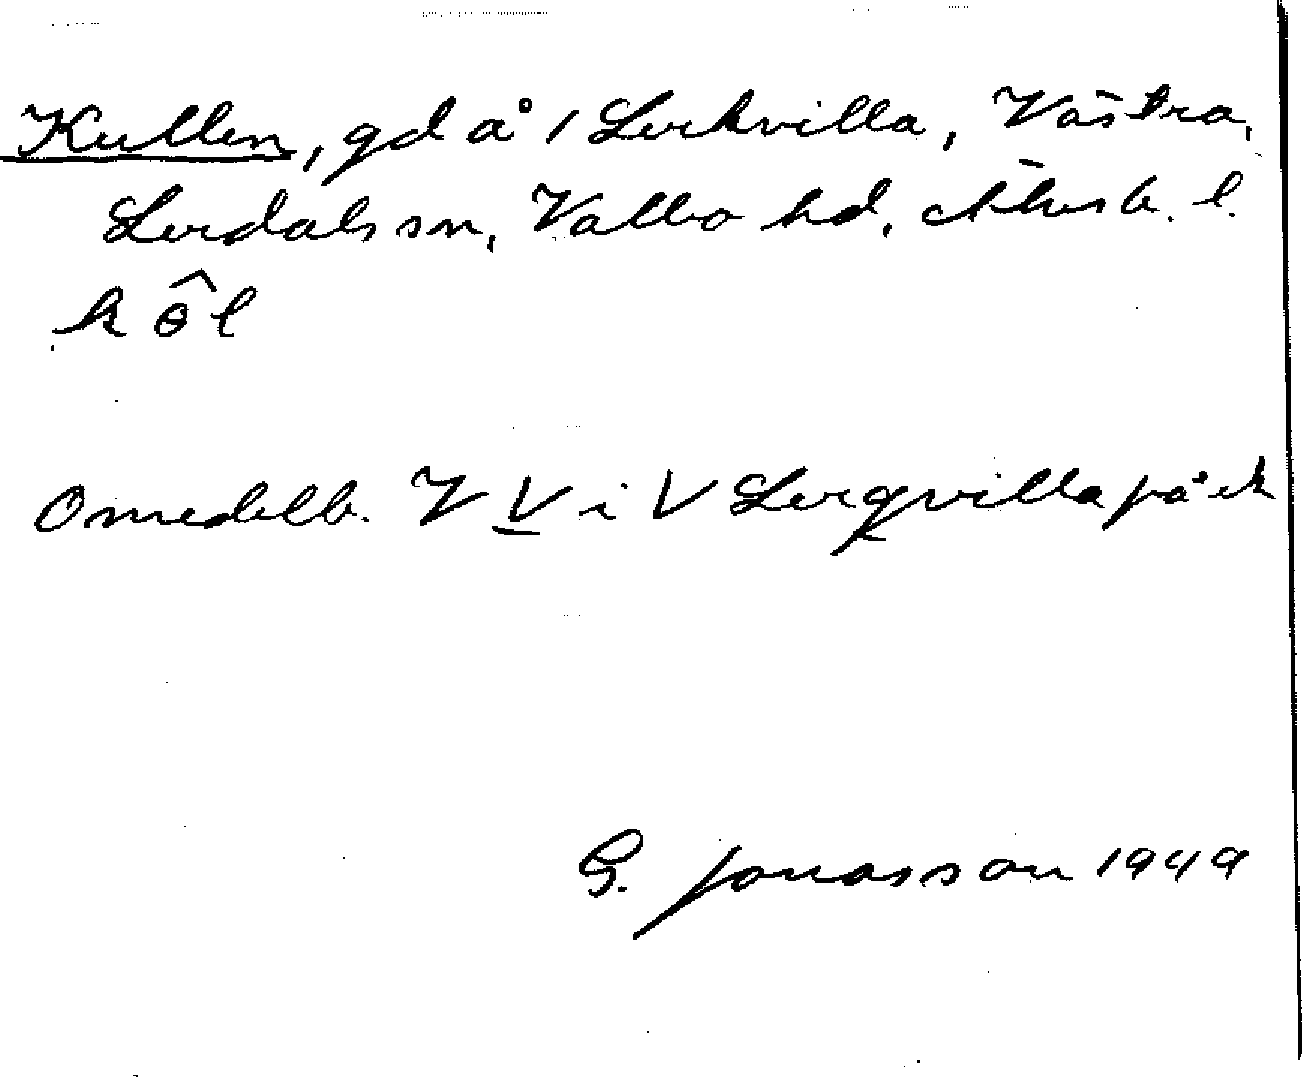 Kullen, gd å 1 Lerkvilla, Västra,
Lerdals sn, Valbo hd, Älvsb. l.
kôl
Omedelb. V V i V Lerqvilla på ek
G. Jonasson 1949